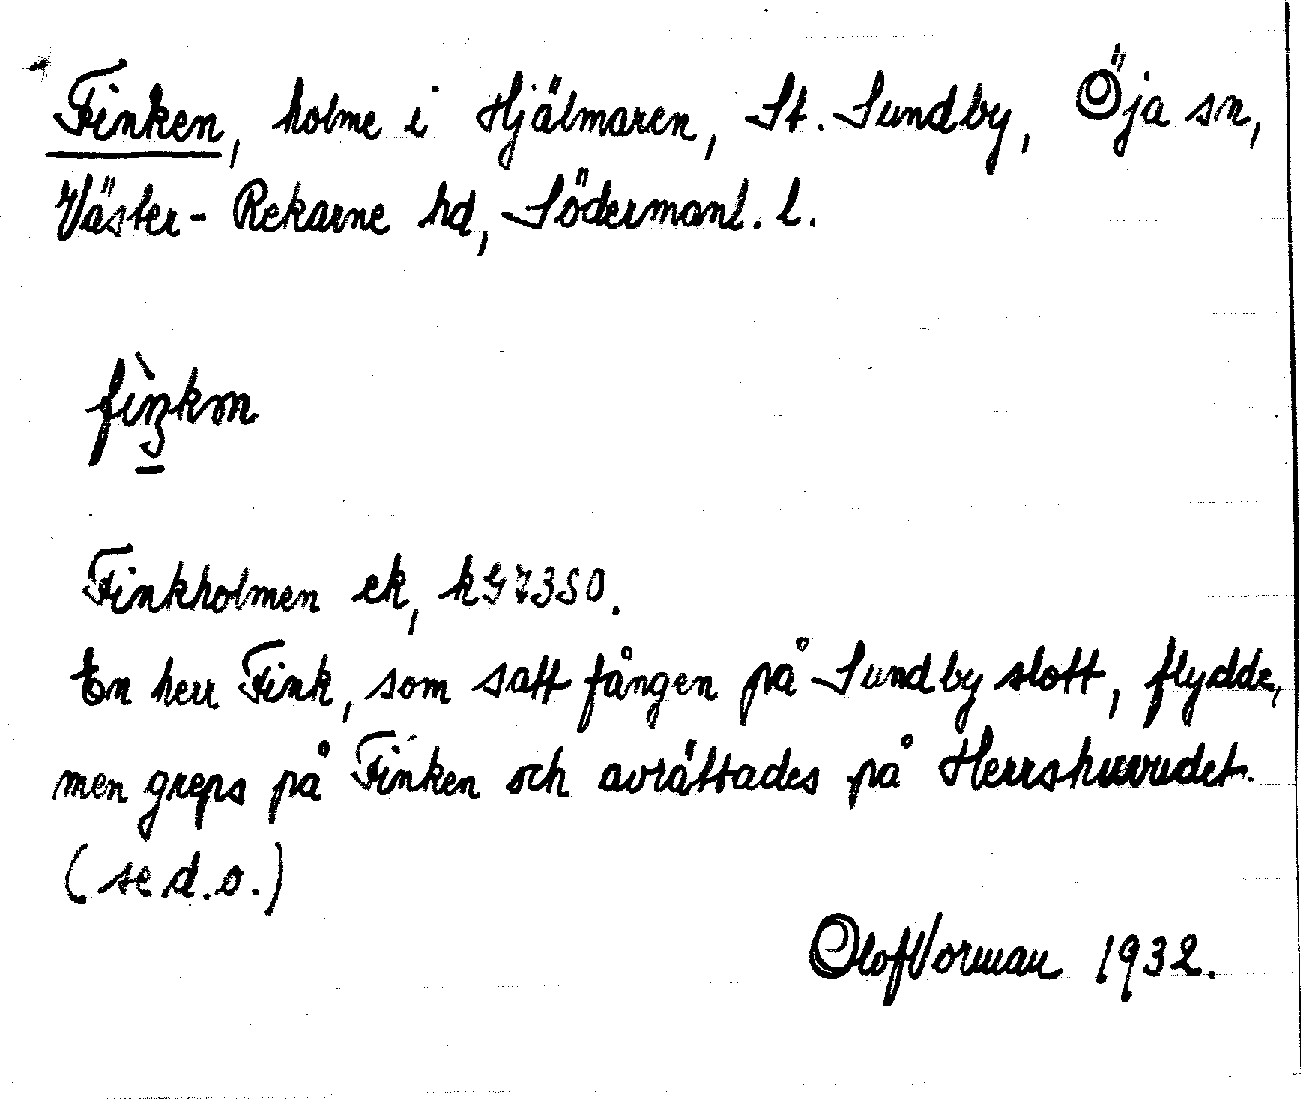 Finken, holme i Hjälmaren, St. Sundby, Öja sn,
Väster-Rekarne hd, Södermanl. l.
Finkholmen ek, kG7350.
En herr Fink, som satt fången på Sundby slott, flydde,
men greps på Finken och avrättades på Herrshuvudet.
(se d.o.)
Olof Vorman 1932.